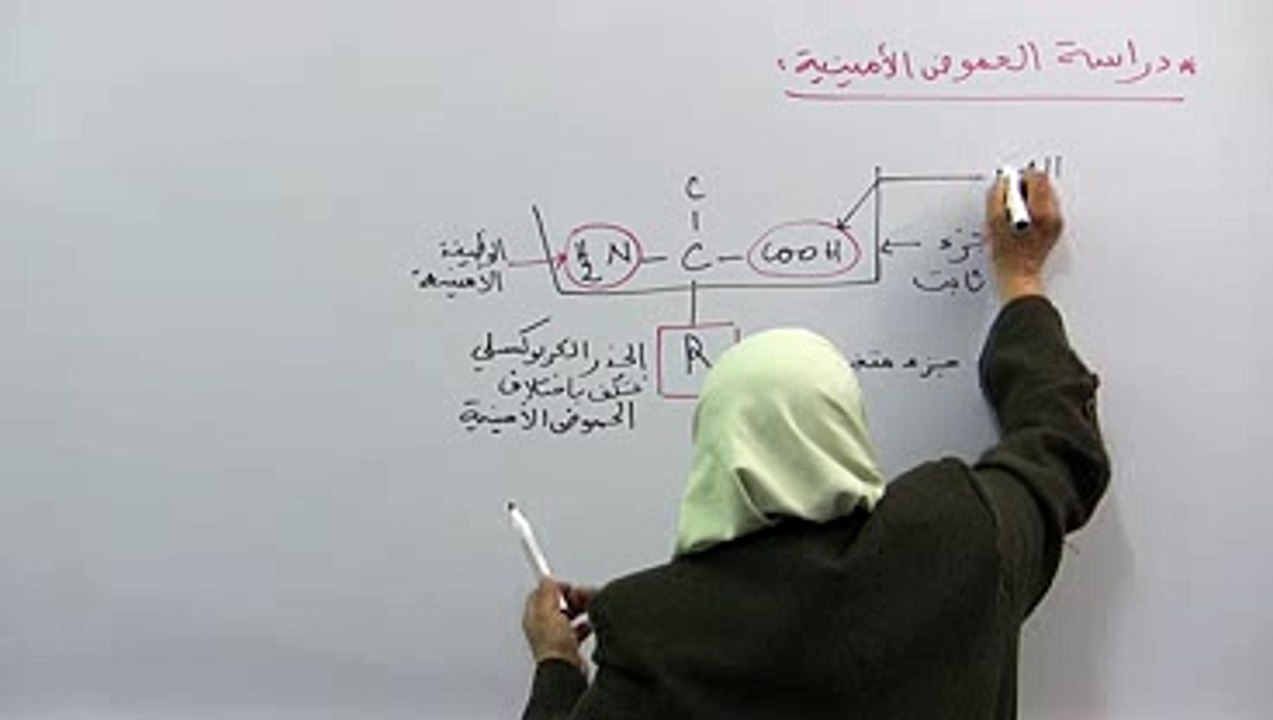 * دراسة الحموض الأمينية:
C
H2N - C - COOH
الوظيفة
الأمينية
جزء
ثابت
R
الجذر الكربوكسيلي
يختلف باختلاف
الحموض الأمينية
جزء